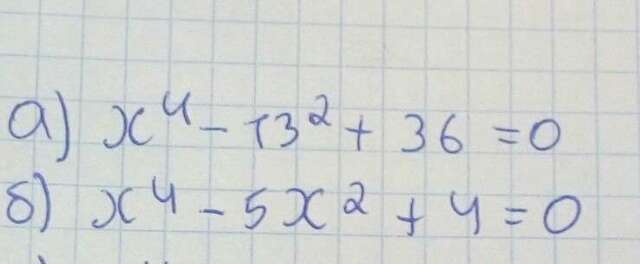 а) x⁴ - 13² + 36 = 0
б) x⁴ - 5x² + 4 = 0